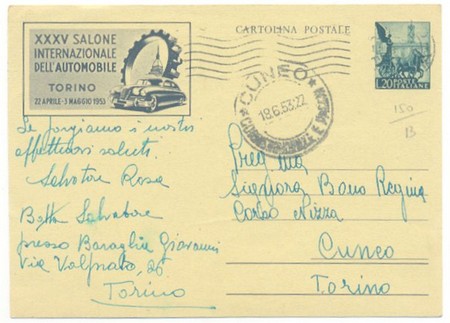 XXXV SALONE
INTERNAZIONALE
DELL'AUTOMOBILE
TORINO
22 APRILE - 3 MAGGIO 1953
CARTOLINA POSTALE
L.20 POSTE ITALIANE
CUNEO
18.6.53.22
CORRISPONDENZE E PACCHI
150
B
Le porgiamo i nostri
affettuosi saluti.
Salvatore Rosa
Betta Salvatore
presso Baraglia Giovanni
Via Valprato, 26
Torino
Preg.ma
Signora Bono Regina
Corso Nizza
Cuneo
Torino